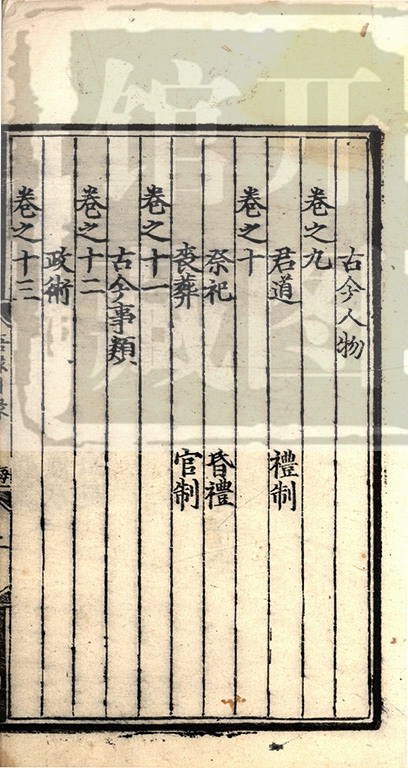 古今人物
卷之九
君道 禮制
卷之十
祭祀 昏禮
喪葬 官制
卷之十一
古今事類
卷之十二
政術
卷之十三